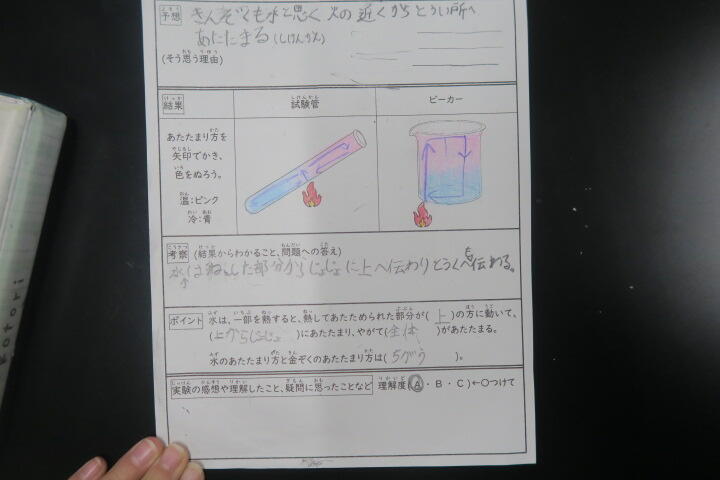 予想 きんぞくも水と思く火の近くからとうい所へ
あたたまる(しけんかん)
(そう思う理由)
結果 試験管 ビーカー
あたたまり方を
矢印でかき、
色をぬろう。
温:ピンク
冷:青
考察 (結果からわかること、問題への答え)
水はねっした部分からじょじょに上へ伝わりとうくへも伝わる。
ポイント 水は、一部を熱すると、熱してあたためられた部分が( 上 )の方に動いて、
(上からじょじょ )にあたたまり、やがて(全体 )があたたまる。
水のあたたまり方と金ぞくのあたたまり方は( ちがう )。
実験の感想や理解したこと、疑問に思ったことなど 理解度(A・B・C)←○つけて
kotori